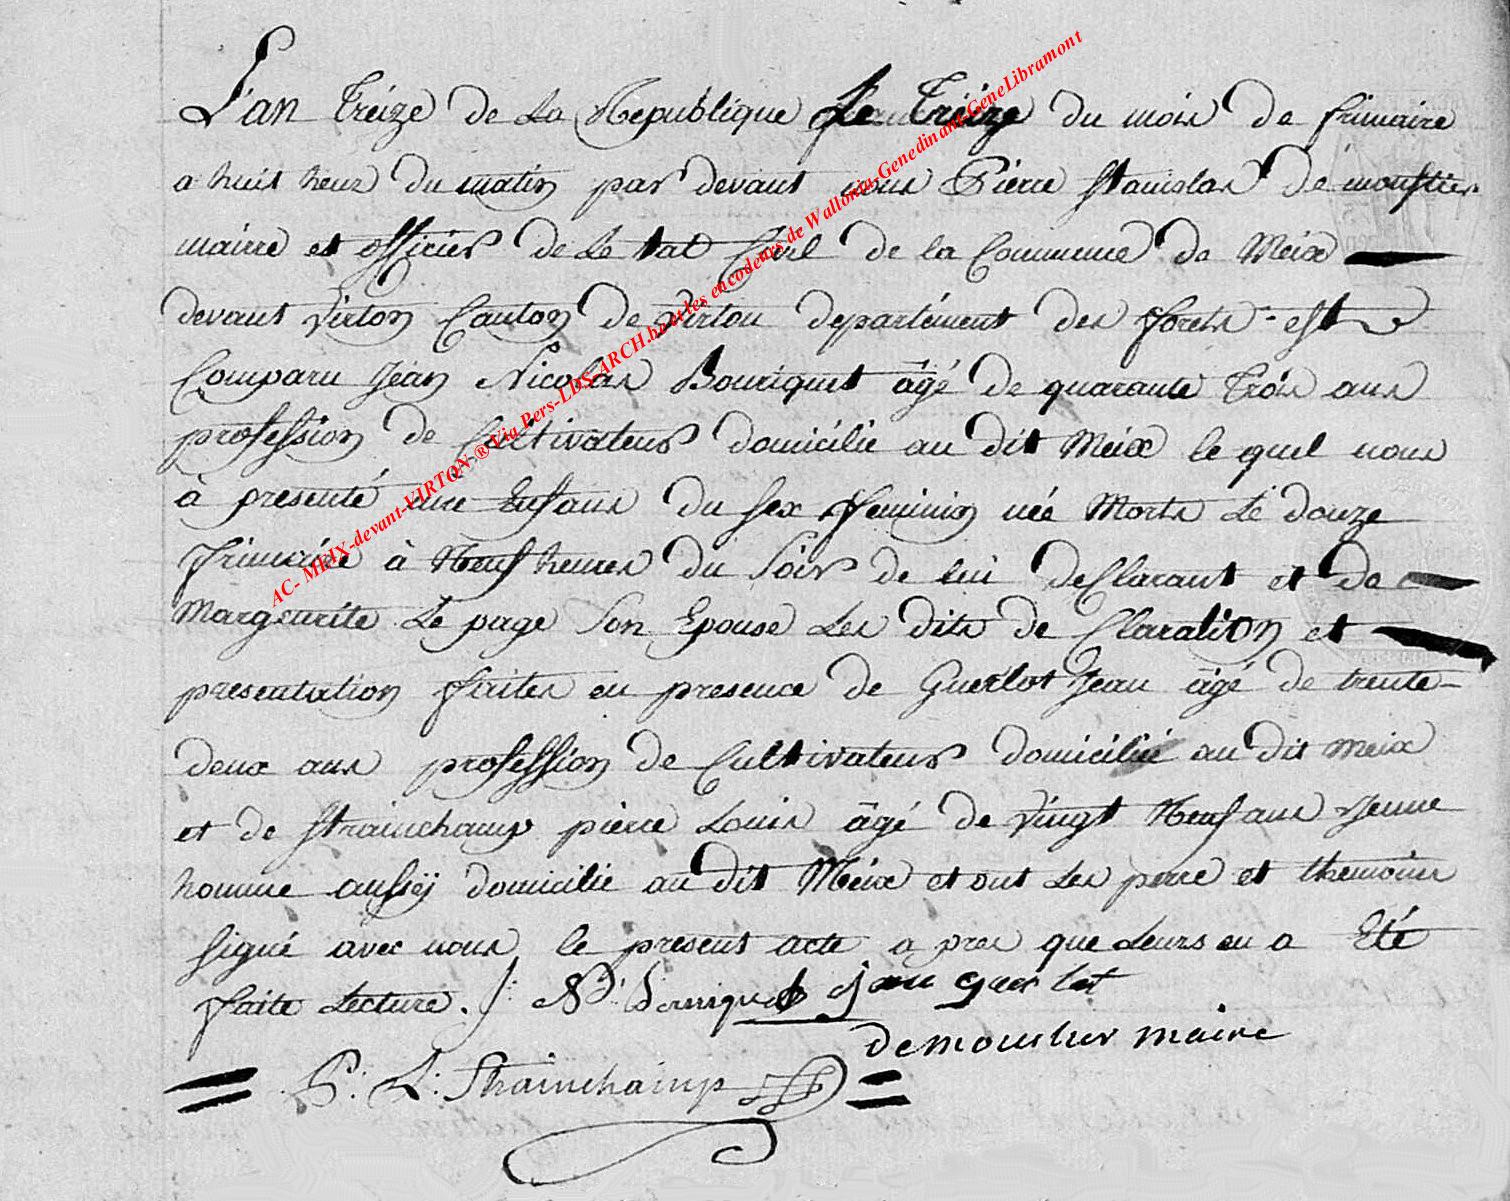 L'an treize de la Republique Le Treize du mois de frimaire
a huit heur du matin par devant nous Pierre Stanislas de moustier
mairre et officier de Le tat Civil de la Commune de Meix
devant Virton Canton de Virton departement des forets est
Comparu Jean Nicolas Bouriquet âgé de quarante trois ans
profession de Cultivateur domicilié au dit Meix le quel nous
à presenté une Enfans du sex feminin née Morte Le douze
frimaire à Neuf heures du soir de lui de Clarant et de
Margeurite Le page Son Epouse Les dits de Claration et
presentation faites en presence de Guerlot Jean âgé de trente
deux ans profession de Cultivateur domicilié au dit Meix
et de Strainchamp pierre Louis âgé de Vingt Neuf ans Jeune
homme aussÿ domicilie au dit Meix et ont Les pere et themoins
signé avec nous le present acte a pres que Leurs en a Eté
faite Lecture. /: N: Bouriquet jean guerlot
demoustier maire
P: L: Strainchamp
AC- MEIX-devant-VIRTON-® Via Pers-LDS-ARCH.be et les encodeurs de Wallonia-Genedinant-GeneLibramont